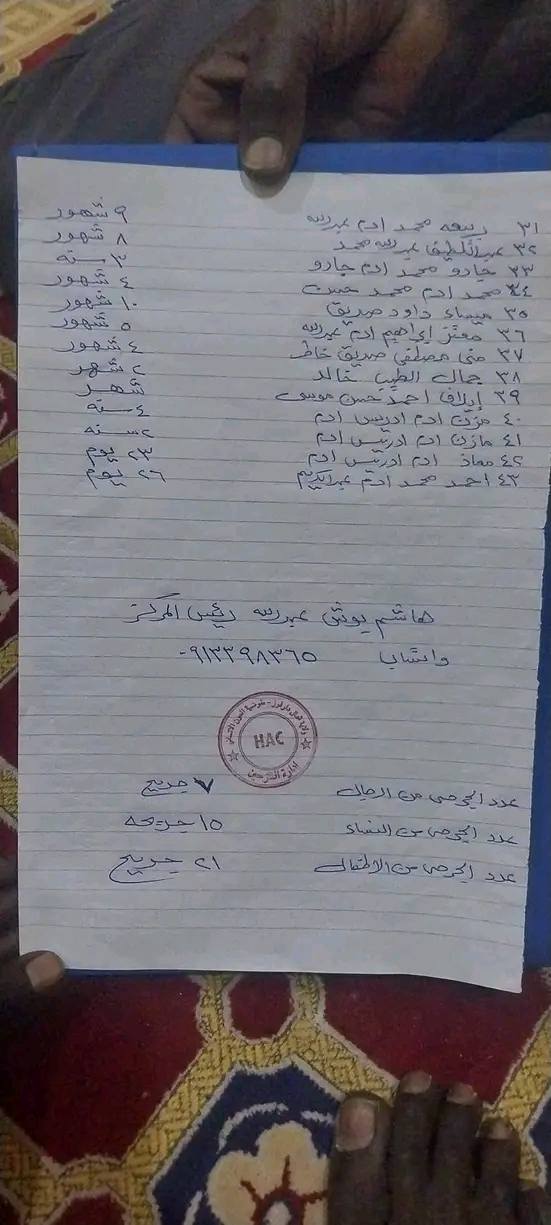 ٣١ ربيعه محمد ادم عبدالله ٩ شهور
٣٢ عبداللطيف عبدالله محمد ٨ شهور
٣٣ جادو محمد ادم جادو ٣ سنه
٣٤ محمد ادم محمد حسن ٤ شهور
٣٥ ميساء داود صديق ١٠ شهور
٣٦ معتز إبراهيم ادم عبدالله ٥ شهور
٣٧ منى مصطفى صديق خاطر ٤ شهور
٣٨ جمال الطيب خالد ٢ شهر
٣٩ إيلاف احمد حسن موسى شهر
٤٠ مزن ادم ادريس ادم ٤ سنه
٤١ مازن ادم ادريس ادم ٢ سنه
٤٢ معاذ ادم ادريس ادم ٢٣ يوم
٤٣ احمد محمد ادم عبدالكريم ٢٦ يوم
هاشم بوش عبدالله رئيس المركز
واتساب ٠٩١٣٣٩٨٣٦٥
ولاية شمال دارفور - مفوضية العون الانساني
HAC
ادارة النازحين
عدد الجرحى من الرجال ٧ جريح
عدد الجرحى من النساء ١٥ جريحه
عدد الجرحى من الاطفال ٢١ جريح